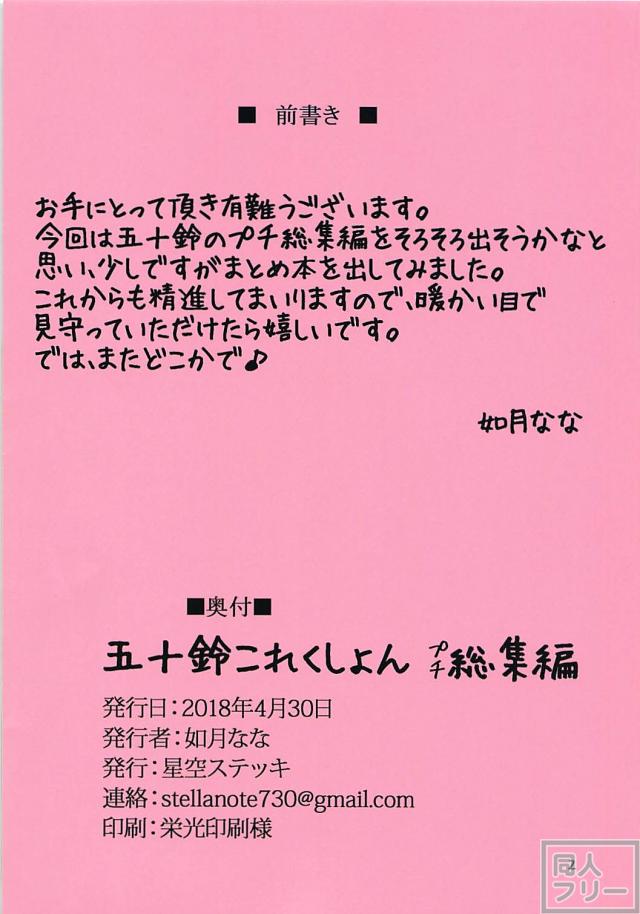 ■ 前書き ■
お手にとって頂き有難うございます。
今回は五十鈴のプチ総集編をそろそろ出そうかなと
思い、少しですがまとめ本を出してみました。
これからも精進してまいりますので、暖かい目で
見守っていただけたら嬉しいです。
では、またどこかで♪
如月なな
■奥付■
五十鈴これくしょん プチ総集編
発行日：2018年4月30日
発行者：如月なな
発行：星空ステッキ
連絡：stellanote730@gmail.com
印刷：栄光印刷様
2
同人
フリー